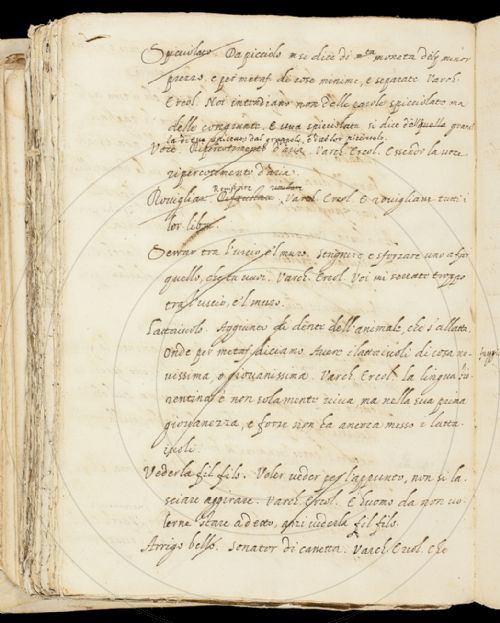 Spicciolato. Da picciolo. E si dice di moneta di minor
prezzo, e per metaf. di cose minime, e separate Varch.
Ercol. Noi intendiamo non delle parole spicciolate ma
delle congiunte. E uva spicciolata si dice della quella
spiccano dal grappolo, è vuol or picciuoli
Voce. Ripercotimento d'aria. Varch. Ercol. Essendo la voce
ripercotimento d'aria.
Rovistare
Rovigliare. Varch. Ercol. E rovigliare tutti i
lor libri.
Serrar tra l'uscio, e 'l muro. Stignere e sforzare uno a far
quello, che tu vuoi. Varch. Ercol. Voi mi serrate troppo
tra l'uscio, e 'l muro.
Lattaiuolo. Aggiunto di dente dell'animale, che s'allatta.
Onde per metaf. diciamo Avere i lattaiuoli di cosa no-
vissima, o giovanissima. Varch. Ercol. la lingua fio-
rentina è non solamente viva ma nella sua prima
giovanezza, e forse non ha ancora messo i latta-
iuoli.
Vederla fil filo. Voler veder per l'appunto, non si la-
sciare aggirare. Varch. Ercol. È huomo da non vo-
lerne stare a detto, ma vederla fil filo.
Arrigo bello. Sonator di Varch. Ercol. che